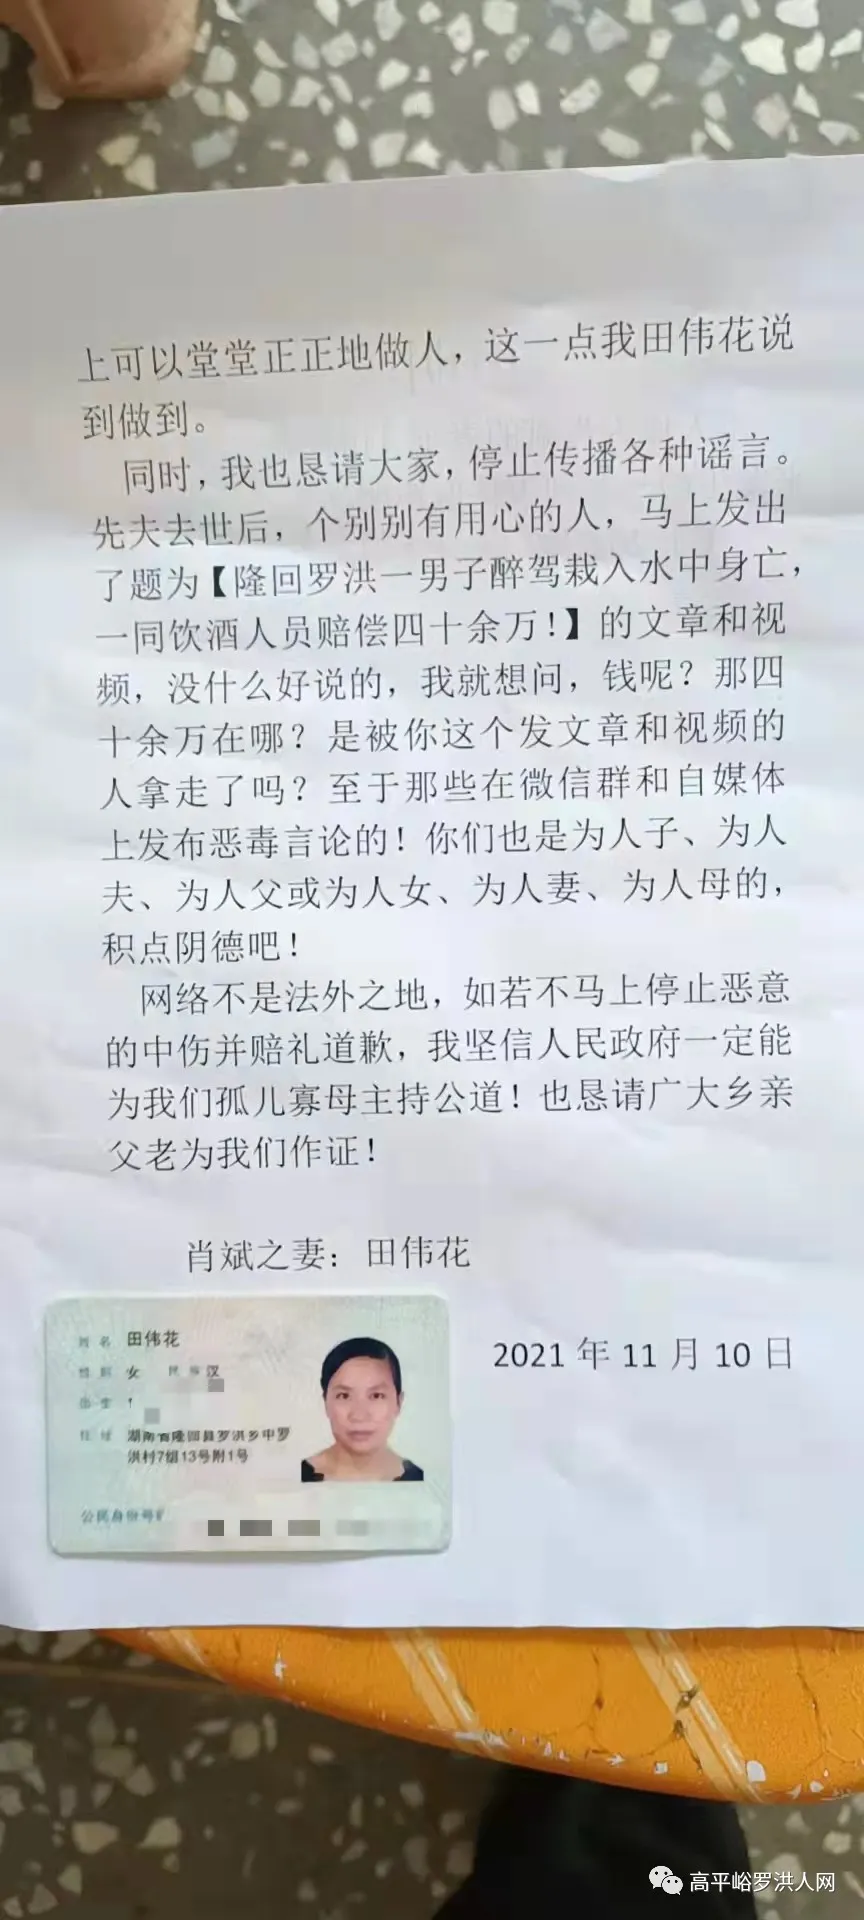 上可以堂堂正正地做人，这一点我田伟花说
到做到。
同时，我也恳请大家，停止传播各种谣言。
先夫去世后，个别别有用心的人，马上发出
了题为【隆回罗洪一男子醉驾栽入水中身亡，
一同饮酒人员赔偿四十余万！】的文章和视
频，没什么好说的，我就想问，钱呢？那四
十余万在哪？是被你这个发文章和视频的
人拿走了吗？至于那些在微信群和自媒体
上发布恶毒言论的！你们也是为人子、为人
夫、为人父或为人女、为人妻、为人母的，
积点阴德吧！
网络不是法外之地，如若不马上停止恶意
的中伤并赔礼道歉，我坚信人民政府一定能
为我们孤儿寡母主持公道！也恳请广大乡亲
父老为我们作证！
肖斌之妻：田伟花
2021年11月10日
姓名 田伟花
性别 女 民族 汉
出生 1
住址 湖南省隆回县罗洪乡中罗
洪村7组13号附1号
公民身份号
高平峪罗洪人网